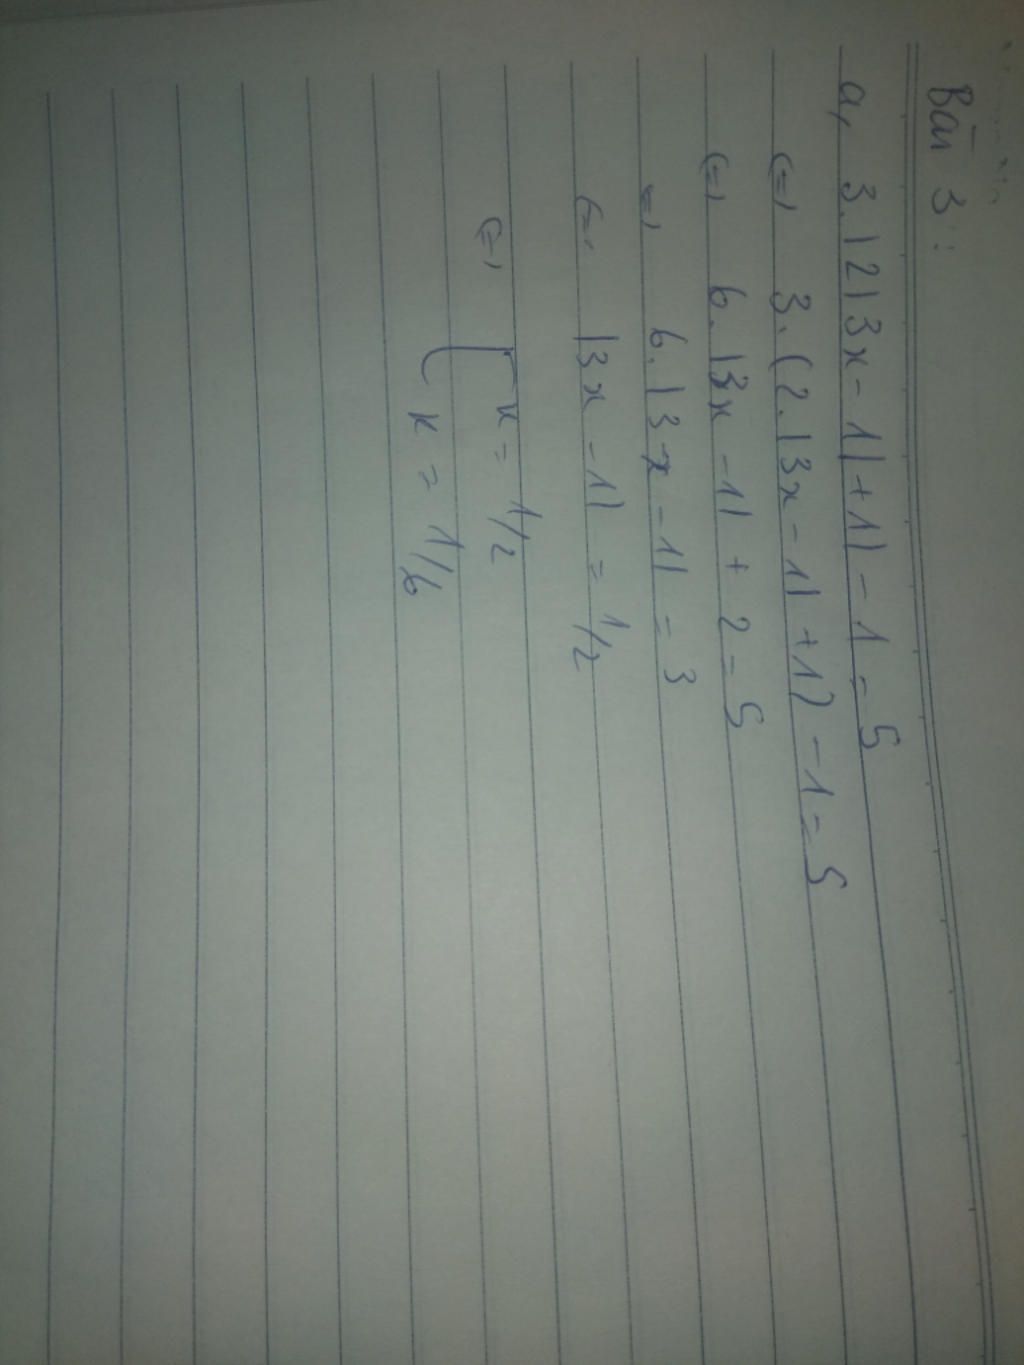 Bài 3:
a, 3.|2|3x-1|+1|-1=5
(=) 3.(2.|3x-1|+1)-1=5
(=) 6.|3x-1|+2=5
(=) 6.|3x-1|=3
(=) |3x-1|=1/2
(=) [x=1/2
x=1/6